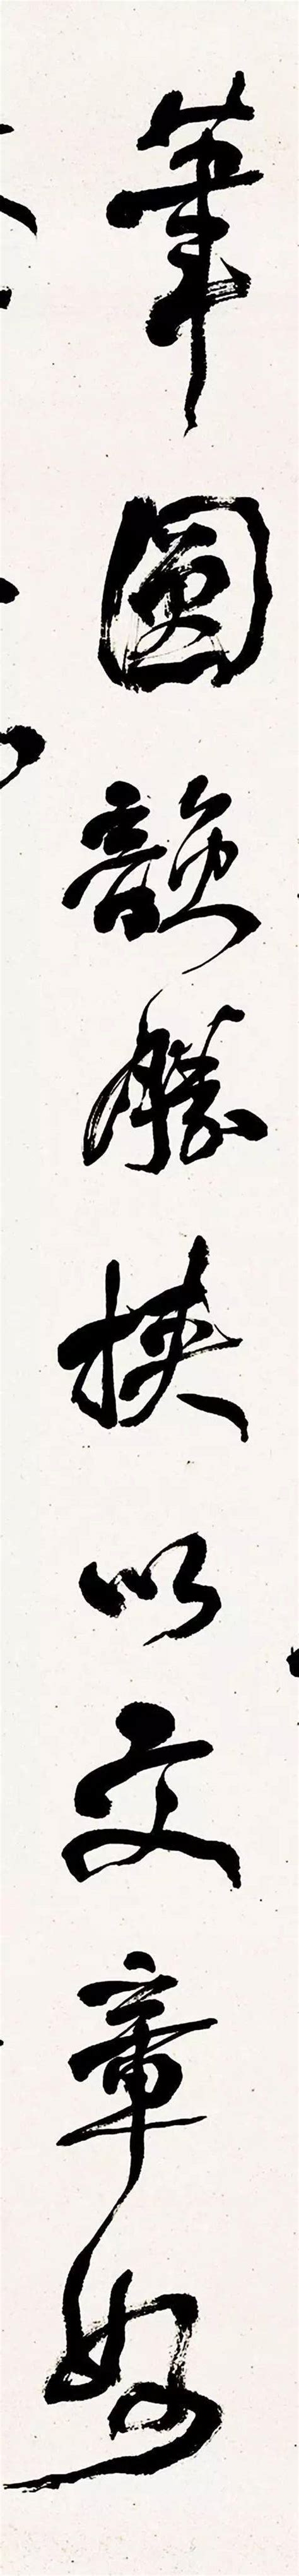 筆圓韻勝挾以文章妙